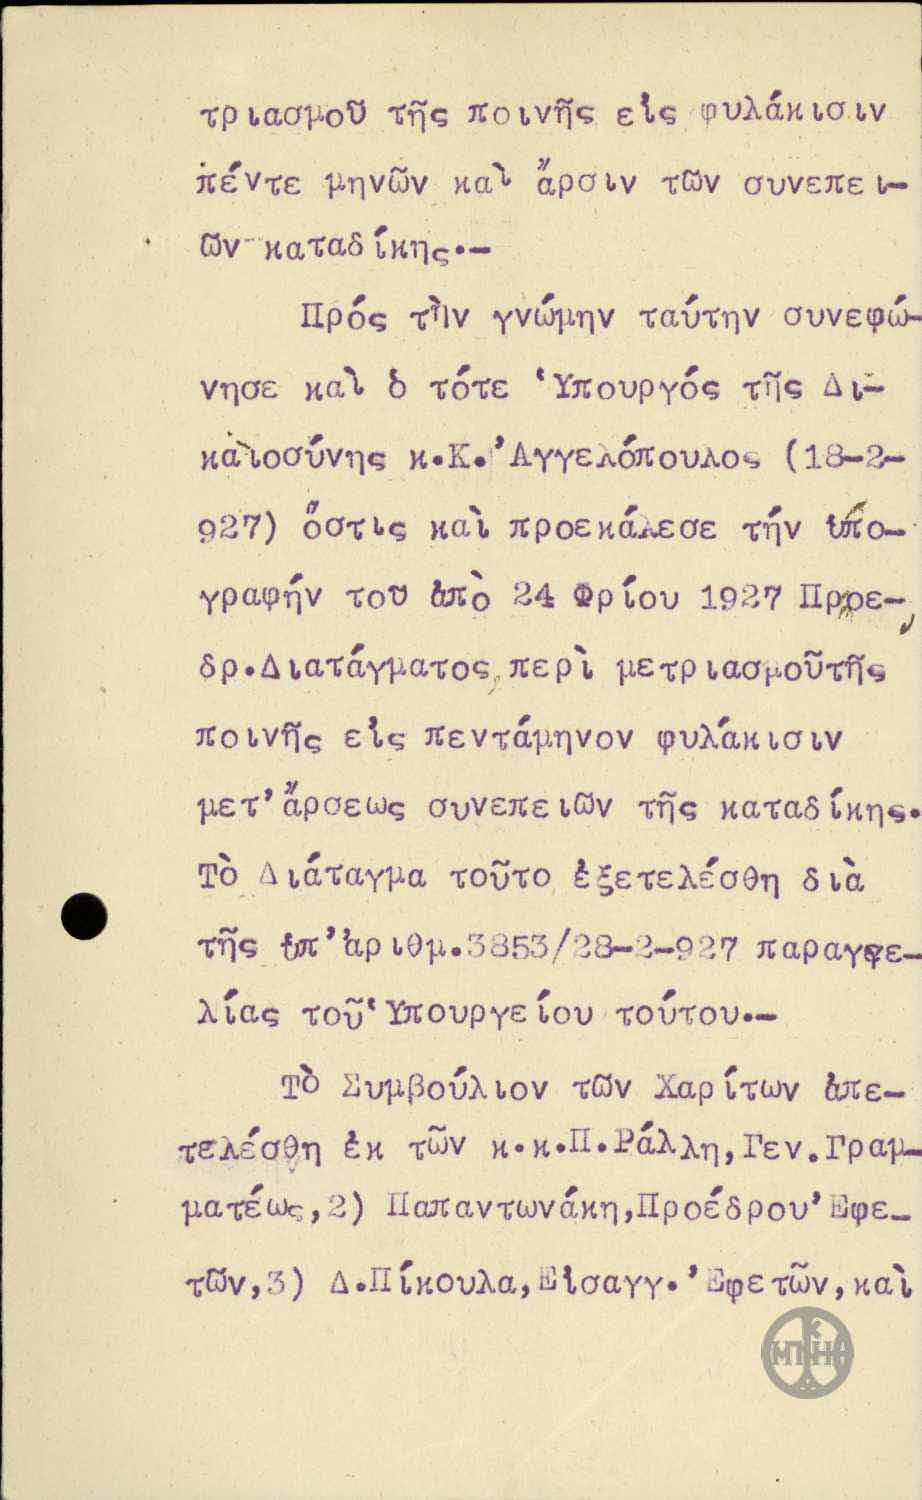 τριασμοῦ τῆς ποινῆς εἰς φυλάκισιν
πέντε μηνῶν καὶ ἄρσιν τῶν συνεπει-
ῶν καταδίκης.-
Πρός τὴν γνώμην ταύτην συνεφώ-
νησε καὶ ὁ τότε Ὑπουργός τῆς Δι-
καιοσύνης κ.Κ.Ἀγγελόπουλος (18-2-
927) ὅστις καὶ προεκάλεσε τήν ὑπο-
γραφήν τοῦ ἀπὸ 24 Φρίου 1927 Προε-
δρ.Διατάγματος, περὶ μετριασμοῦτῆς
ποινῆς εἰς πεντάμηνον φυλάκισιν
μετ'ἄρσεως συνεπειῶν τῆς καταδίκης.
Τὸ Διάταγμα τοῦτο ἐξετελέσθη διὰ
τῆς ὑπ'ἀριθμ.3853/28-2-927 παραγγε-
λίας τοῦ Ὑπουργείου τούτου.-
Τὸ Συμβούλιον τῶν Χαρίτων ἀπε-
τελέσθη ἐκ τῶν κ.κ.Π.Ράλλη,Γεν.Γραμ-
ματέως,2) Παπαντωνάκη,Προέδρου Ἐφε-
τῶν,3) Δ.Πίκουλα,Εἰσαγγ.Ἐφετῶν,καὶ